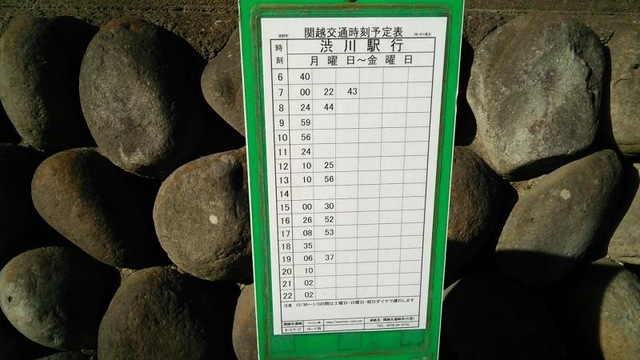 関越交通時刻予定表
時刻 渋川駅行
月曜日～金曜日
6 40
7 00 22 43
8 24 44
9 59
10 56
11 24
12 10 25
13 10 56
14
15 00 30
16 26 52
17 08 53
18 35
19 06 37
20 10
21 02
22 02